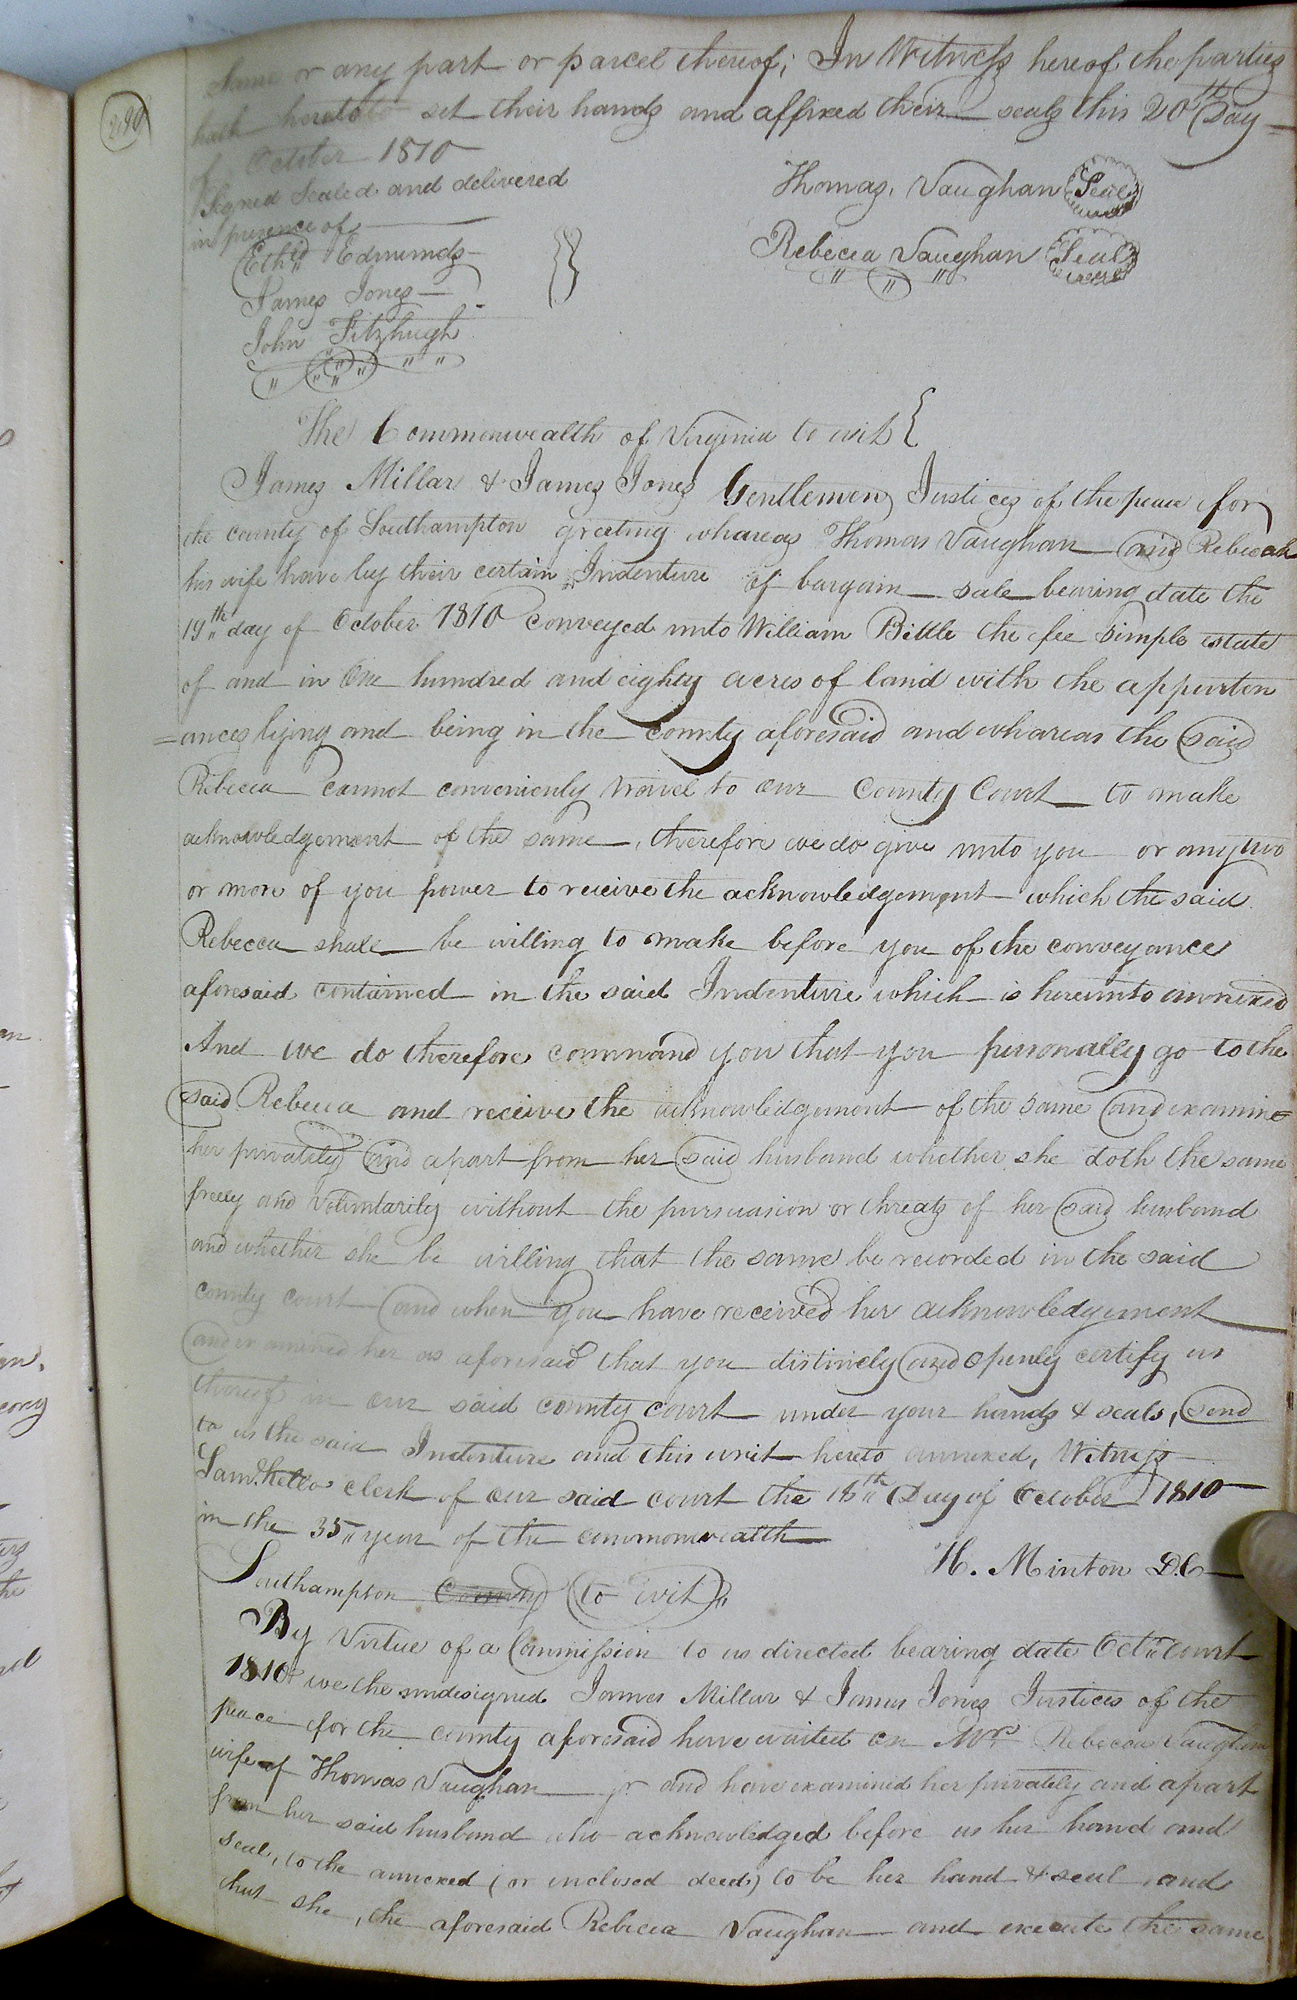 290
Same or any part or parcel thereof; In Witness hereof the parties
hath hereto set their hands and affixed their seals this 20th Day
of October 1810
Signed Sealed and delivered
in presence of
Thomas Vaughan Seal
Ethd Edmunds
Rebecca Vaughan Seal
James Jones
John Fitzhugh
The Commonwealth of Virginia to wit
James Millar & James Jones Gentlemen Justices of the peace for
the county of Southampton greeting whareas Thomas Vaughan and Rebecah
his wife have by their certain Indenture of bargain sale bearing date the
19th day of October 1810 conveyed unto William Bittle the fee simple estate
of and in One hundred and eighty acres of land with the appurten
=ances lying and being in the county aforesaid and whareas the said
Rebecca cannot conveniently travel to our County Court to make
acknowledgement of the same, therefore we do give unto you or any two
or more of you power to receive the acknowledgement which the said
Rebecca shall be willing to make before you of the conveyance
aforesaid contained in the said Indenture which is hereunto annexed
And we do therefore command you that you personally go to the
said Rebecca and receive the acknowledgement of the same and examine
her privately and apart from her said husband whether she doth the same
freely and voluntarily without the pursuasion or threats of her said husband
and whether she be willing that the same be recorded in the said
county court and when you have received her acknowledgement
and examined her as aforesaid that you distinctly and openly certify us
thereof in our said county court under your hands & seals, send
to us the said Indenture and this writ hereto annexed, Witness
Saml. Kello clerk of our said court the 18th Day of October 1810
in the 35 year of the commonwealth
H. Minton D.C
Southampton County to wit
By Virtue of a Commission to us directed bearing date Octr court
1810 we the undesigned James Millar & James Jones Justices of the
peace for the county aforesaid have waited on Mrs Rebecca Vaughan
wife of Thomas Vaughan jr and have examined her privately and apart
from her said husband who acknowledged before us her hand and
seal, to the annexed (or inclosed deed) to be her hand & seal and
that she, the aforesaid Rebecca Vaughan and execute the same